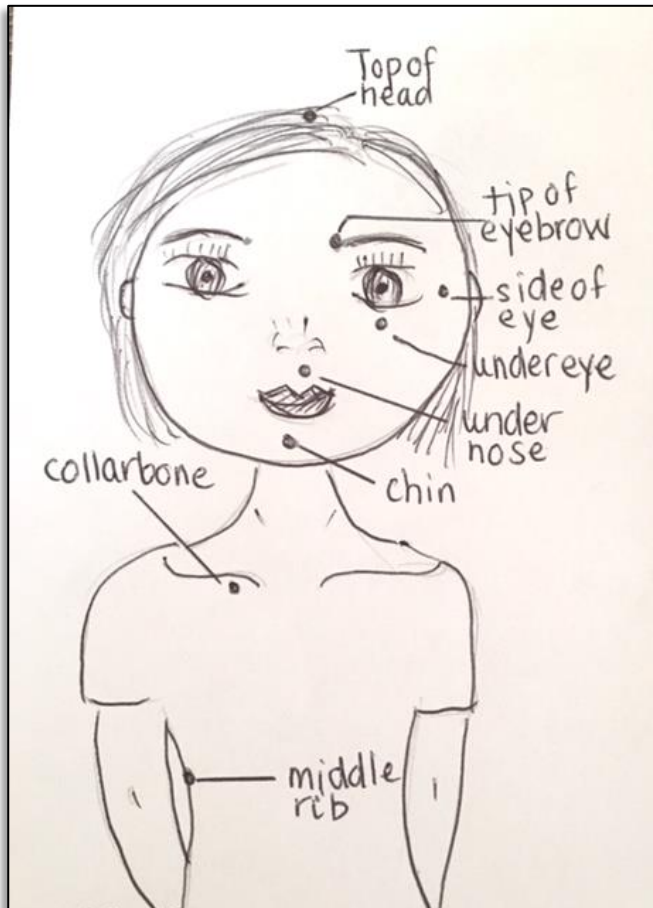 Top of
head
tip of
eyebrow
side of
eye
under eye
under
nose
chin
collarbone
middle
rib